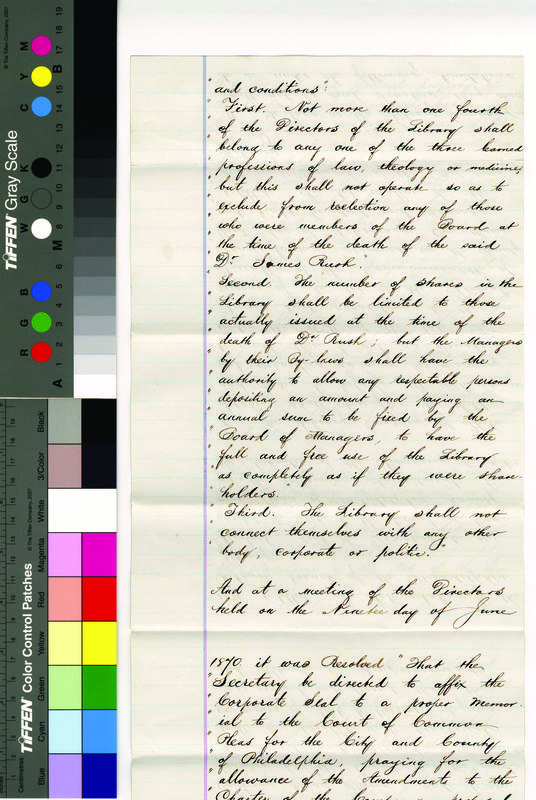 and conditions":
"First. Not more than one fourth
"of the Directors of the Library shall
"belong to any one of the three learned
"professions of law, theology or medicine,
"but this shall not operate so as to
"exclude from reelection any of those
"who were members of the Board at
"the time of the death of the said
"Dr James Rush".
"Second. The number of shares in the
"Library shall be limited to those
"actually issued at the time of the
"death of Dr Rush; but the Managers
"by their By-laws shall have the
"authority to allow any respectable persons
"depositing an amount and paying an
"annual sum to be fixed by the
"Board of Managers, to have the
"full and free use of the Library
"as completely as if they were share-
"holders."
"Third. The Library shall not
"connect themselves with any other
"body, corporate or politic."
And at a meeting of the Directors
held on the day of June
1870 it was Resolved "That the
"Secretary be directed to affix the
"Corporate Seal to a proper Memor-
"ial to the Court of Common
"Pleas for the City and County
"of Philadelphia, praying for the
"allowance of the Amendments to the
"Charter of the
© The Tiffen Company, 2007
TIFFEN Gray Scale
R G B W G K C Y M
A 1 2 3 4 5 6 M 8 9 10 11 12 13 14 15 B 17 18 19
© The Tiffen Company, 2007
TIFFEN Color Control Patches
Centimetres
Blue Cyan Green Yellow Red Magenta White 3/Color Black